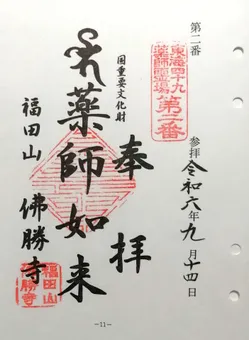 第二番
東海四十九
薬師霊場
第二番
参拝 令和六年九月十四日
奉拝
国重要文化財
薬師如来
福田山 佛勝寺
福田山
佛勝寺
-11-